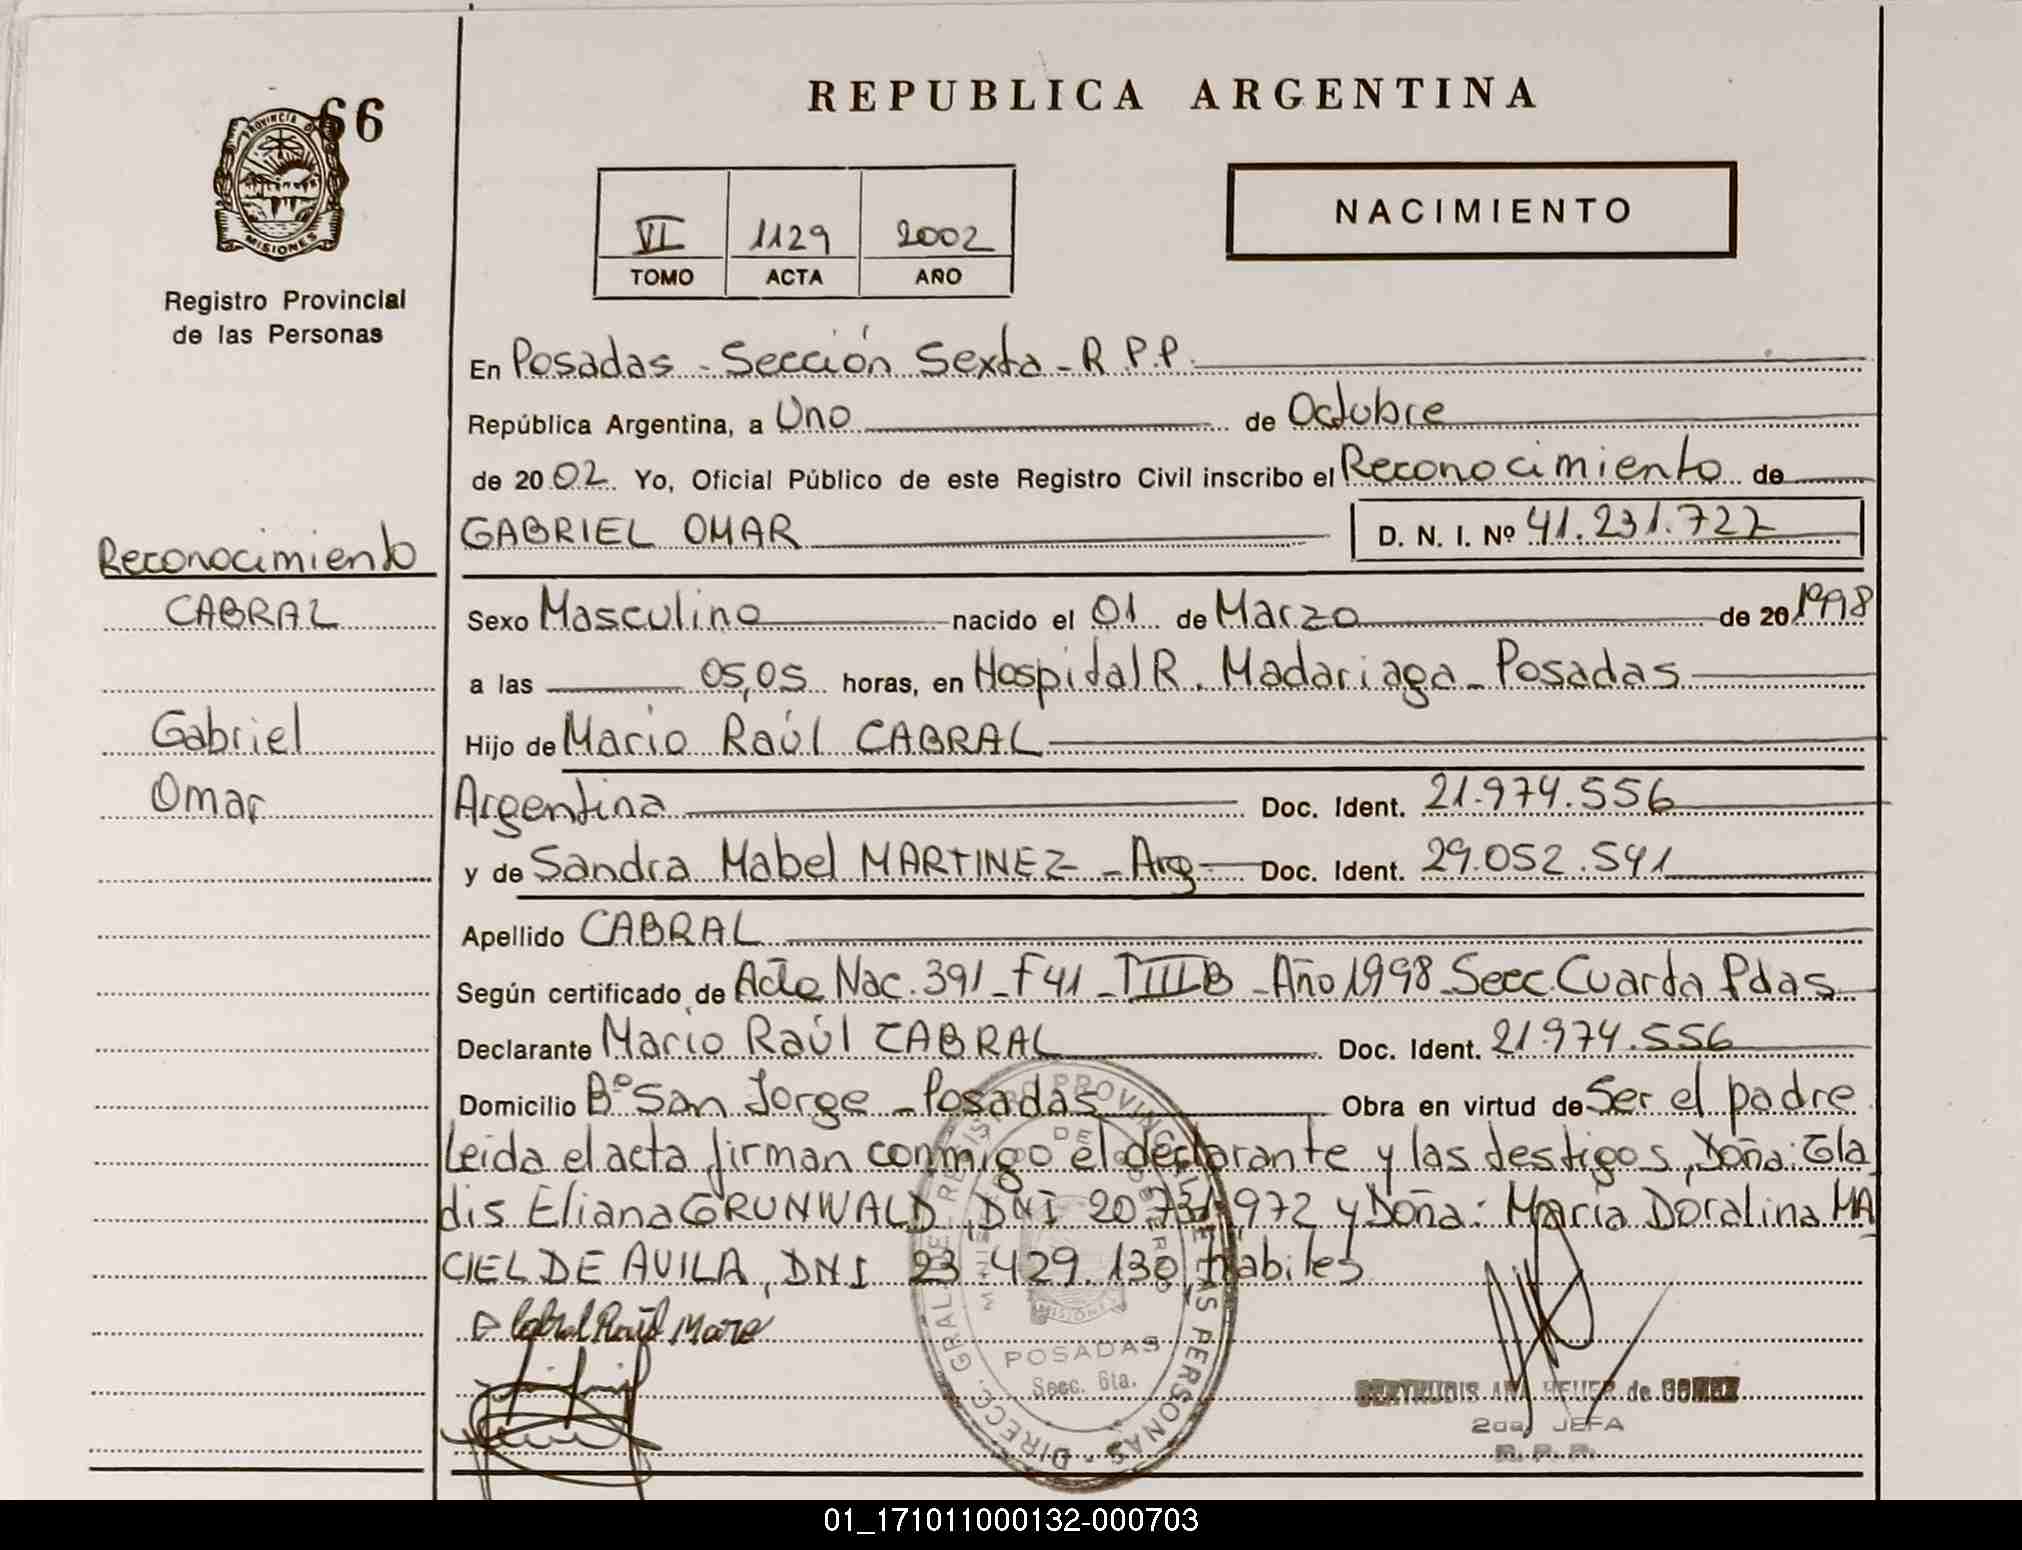 REPUBLICA ARGENTINA
66
PROVINCIA DE
MISIONES
Registro Provincial
de las Personas
VI 1129 2002
TOMO ACTA AÑO
NACIMIENTO
En Posadas - Sección Sexta - R.P.P.
República Argentina, a Uno de Octubre
de 2002 Yo, Oficial Público de este Registro Civil inscribo el Reconocimiento de
GABRIEL OMAR D. N. I. Nº 41.231.727
Reconocimiento
CABRAL
Gabriel
Omar
Sexo Masculino nacido el 01 de Marzo de 20 1998
a las 05,05 horas, en Hospital R. Madariaga - Posadas
Hijo de Mario Raúl CABRAL
Argentina Doc. Ident. 21.974.556
y de Sandra Mabel MARTINEZ - Arg Doc. Ident. 29.052.541
Apellido CABRAL
Según certificado de Acta Nac. 391 - F 41 - T III B - Año 1998 - Secc. Cuarta Pdas
Declarante Mario Raúl CABRAL Doc. Ident. 21.974.556
Domicilio Bº San Jorge - Posadas Obra en virtud de Ser el padre
Leida el acta firman conmigo el declarante y las testigos, Doña: Gla
dis Eliana GRUNWALD, DNI 20.731.972 y Doña: Maria Doralina MA
CIEL DE AVILA, DNI 23.429.130, hábiles
Cabral Raúl Mario
DIRECC. GRAL. DE REGISTRO PROVINCIAL DE LAS PERSONAS
MISIONES
POSADAS
Secc. 6ta.
GERTRUDIS ANA HEUER de GOMEZ
2da. JEFA
R. P. P.
01_171011000132-000703